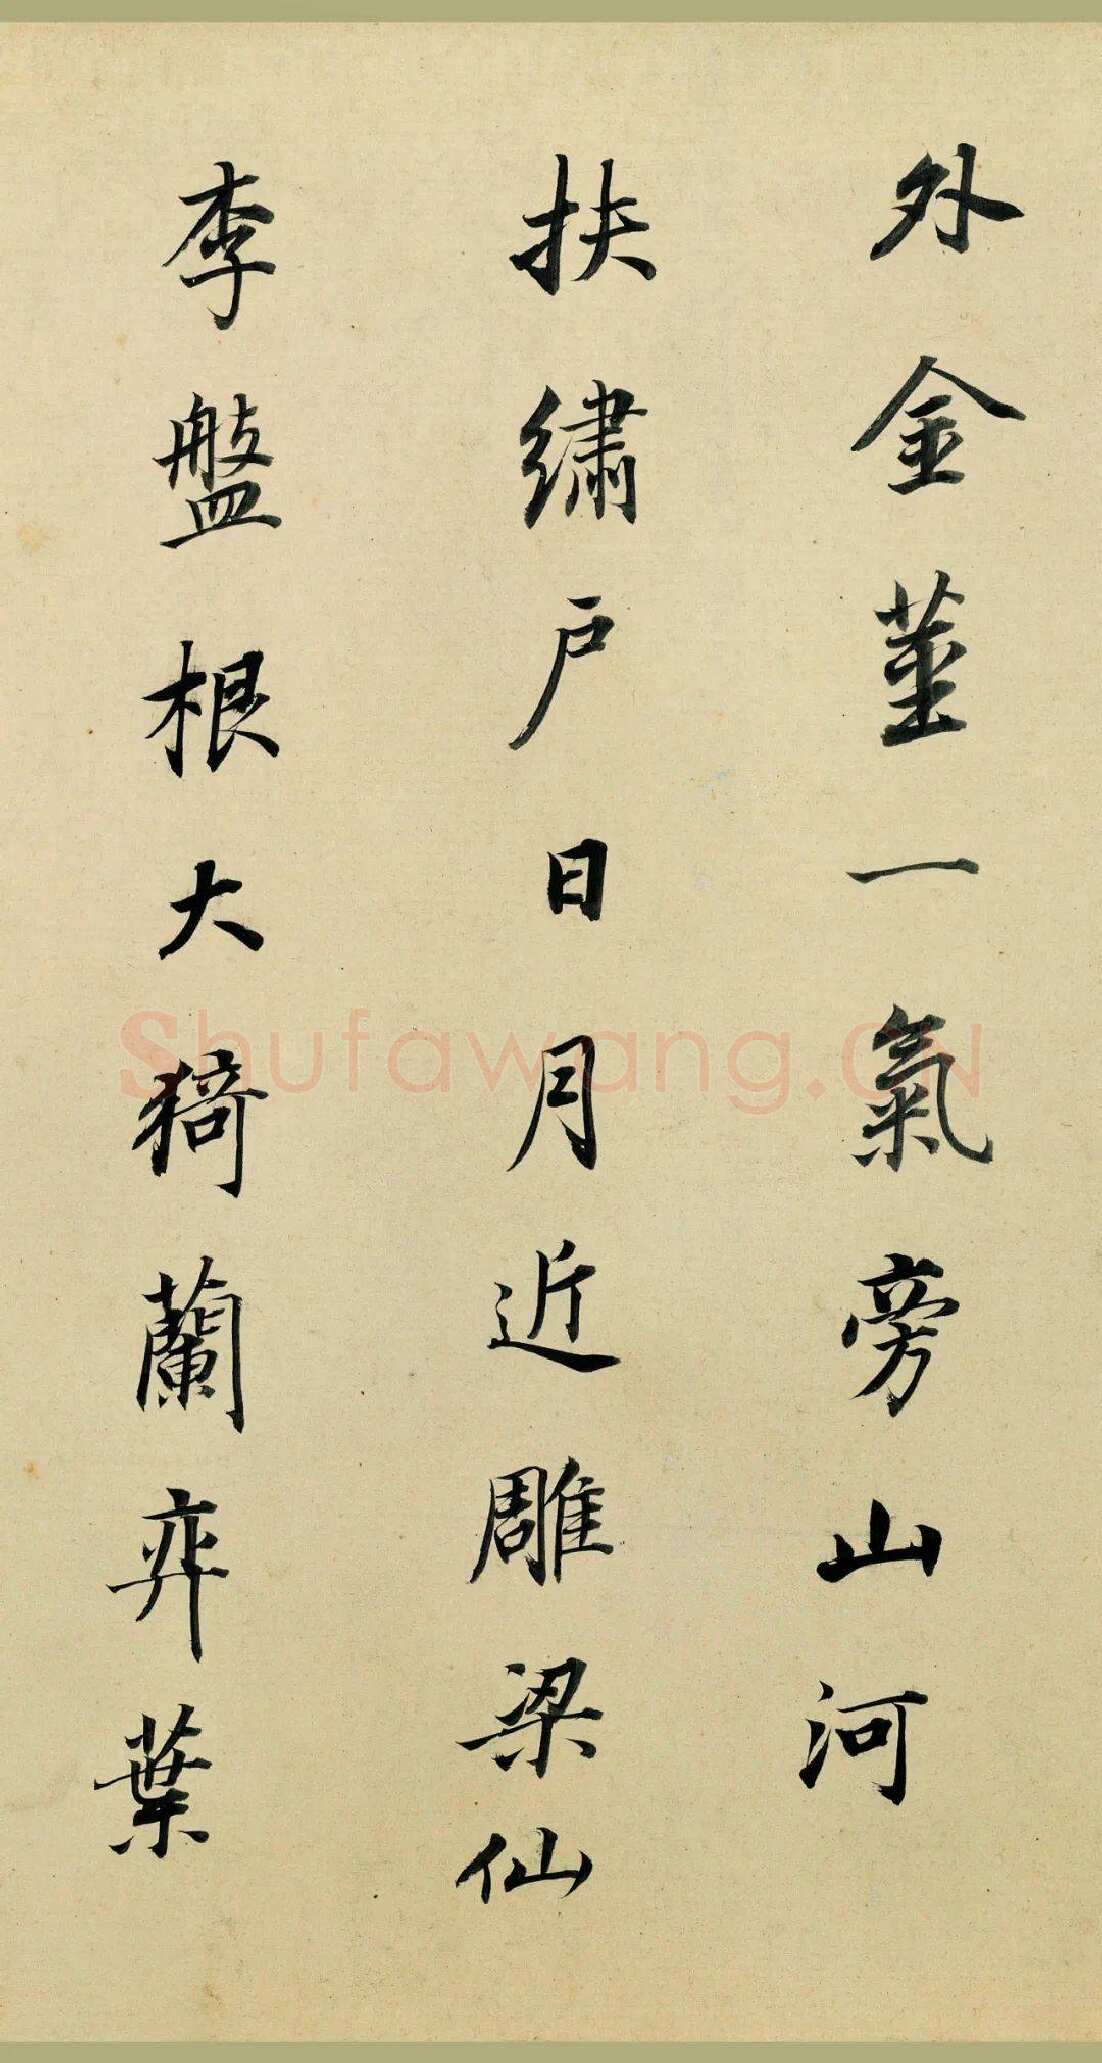 外金莖一氣旁山河
扶繡戶日月近雕梁仙
李盤根大猗蘭弈葉
Shufawang.CN